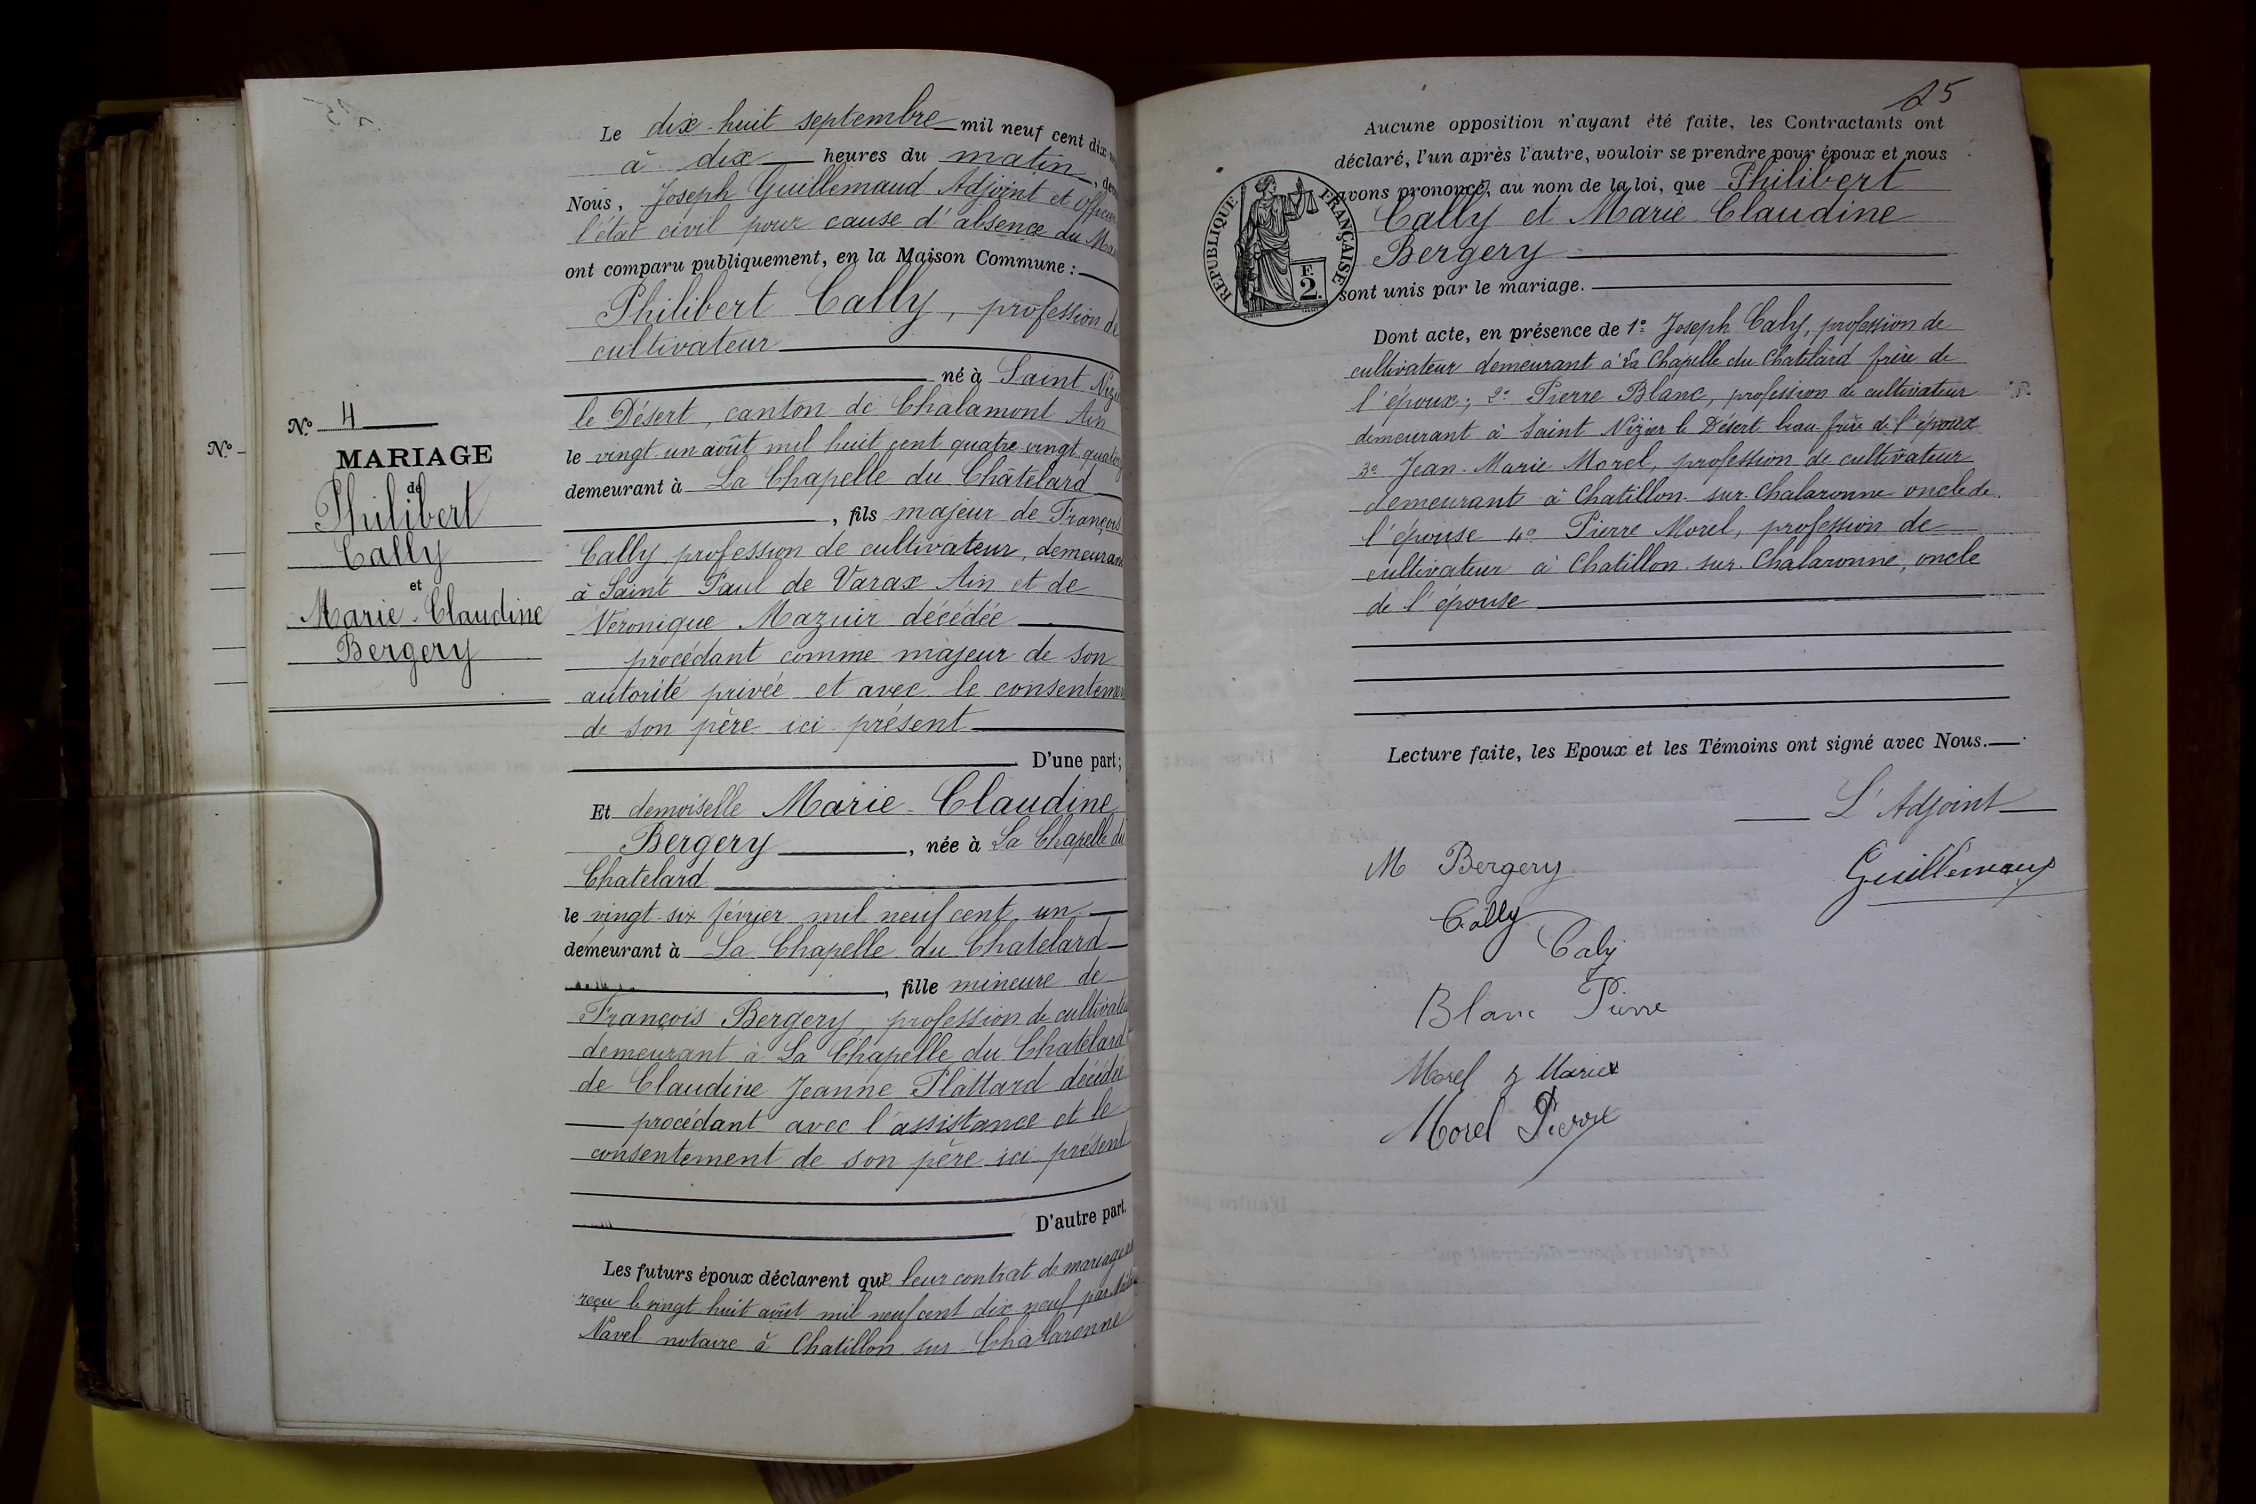 Le dix-huit septembre mil neuf cent dix
à dix heures du matin,
Nous, Joseph Guillemaud Adjoint et officier
l'état civil pour cause d'absence du
ont comparu publiquement, en la Maison Commune :
Philibert Cally, profession de
cultivateur
né à Saint
le Désert, canton de Chalamont Ain
le vingt-un août mil huit cent quatre vingt
demeurant à La Chapelle du Châtelard
, fils majeur de François
Cally profession de cultivateur, demeurant
à Saint Paul de Varax Ain et de
Véronique Mazuir décédée
procédant comme majeur de son
autorité privée et avec le
de son père ici présent
D'une part;
Et demoiselle Marie-Claudine
Bergery, née à La Chapelle du
Chatelard
le vingt-six février mil neuf cent un
demeurant à La Chapelle du Chatelard
, fille mineure de
François Bergery, profession de
demeurant à La Chapelle du Chatelard
de Claudine Jeanne Plattard décédée
procédant avec l'assistance et le
consentement de son père ici présent
D'autre part.
Les futurs époux déclarent que leur contrat de mariage
reçu le vingt huit août mil neuf cent dix neuf par
Navel notaire à Chatillon sur Chalaronne
N° 4
MARIAGE
de
Philibert
Cally
et
Marie-Claudine
Bergery
N°
25
Aucune opposition n'ayant été faite, les Contractants ont
déclaré, l'un après l'autre, vouloir se prendre pour époux et nous
avons prononcé, au nom de la loi, que Philibert
Cally et Marie Claudine
Bergery
sont unis par le mariage.
RÉPUBLIQUE FRANÇAISE
F.
2.
Dont acte, en présence de 1° Joseph Caly, profession de
cultivateur demeurant à La Chapelle du Chatelard frère de
l'époux; 2° Pierre Blanc, profession de cultivateur
demeurant à Saint Nizier le Désert beau frère de l'époux
3° Jean-Marie Morel, profession de cultivateur
demeurant à Chatillon-sur-Chalaronne oncle de
l'épouse 4° Pierre Morel, profession de
cultivateur à Chatillon-sur-Chalaronne, oncle
de l'épouse
Lecture faite, les Epoux et les Témoins ont signé avec Nous.
L'Adjoint
M Bergery
Guillemaud
Cally
Caly
Blanc Pierre
Morel J Marie
Morel Pierre